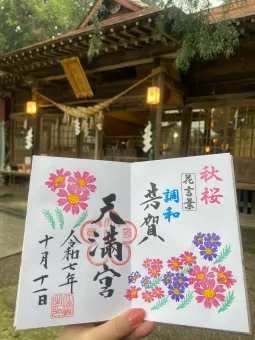 秋桜
花言葉
調和
共賀
天満宮
令和七年
十月十一日